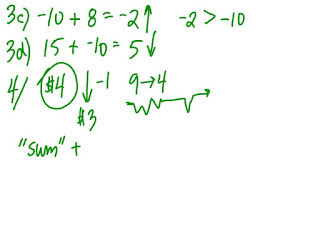 3c) -10 + 8 = -2 ↑ -2 > -10
3d) 15 + -10 = 5 ↓
4/ $4 ↓ -1 9→4
$3
"sum" +